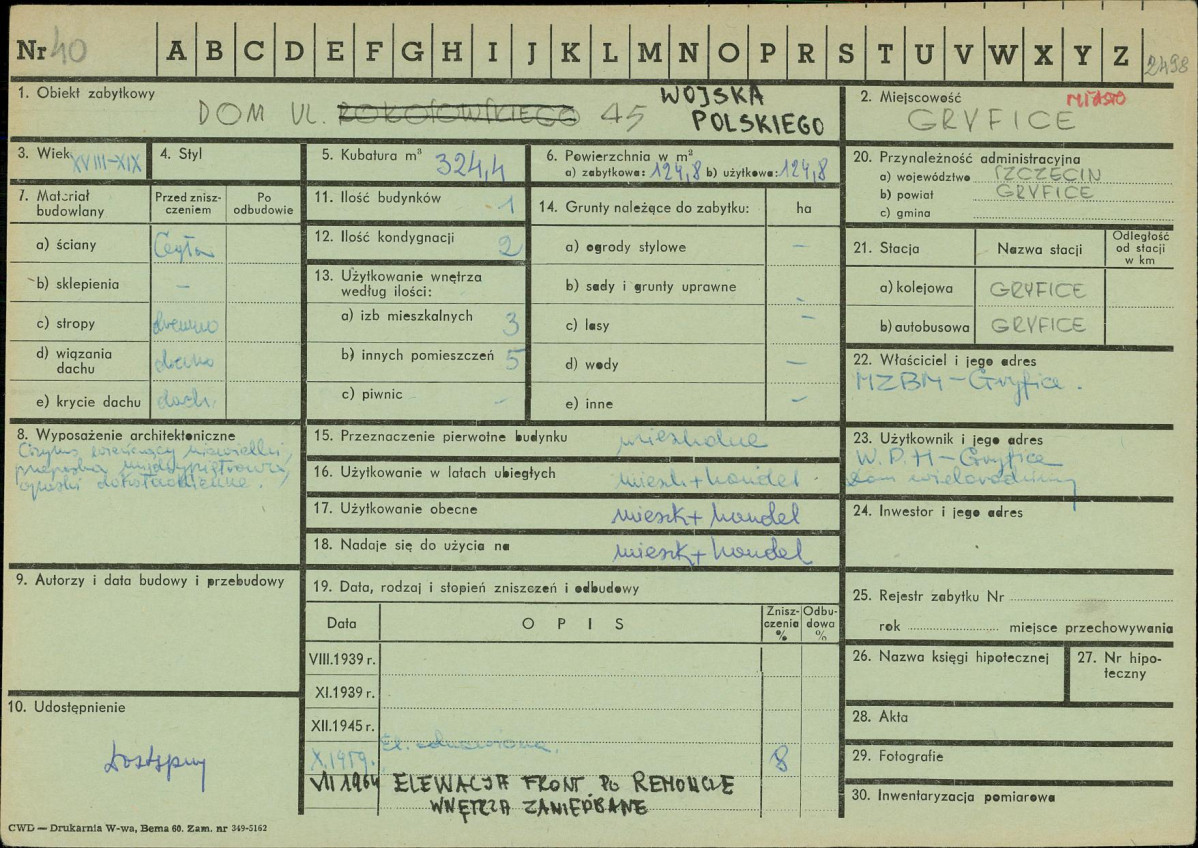 Nr 40 A B C D E F G H I J K L M N O P R S T U V W X Y Z 2498
1. Obiekt zabytkowy
DOM UL. ROKOSOWSKIEGO 45 WOJSKA POLSKIEGO
2. Miejscowość MIASTO
GRYFICE
3. Wiek XVIII-XIX
4. Styl
5. Kubatura m³ 324,4
6. Powierzchnia w m²
a) zabytkowa: 124,8 b) użytkowa: 124,8
20. Przynależność administracyjna
a) województwo SZCZECIN
b) powiat GRYFICE
c) gmina
7. Materiał budowlany
Przed zniszczeniem
Po odbudowie
a) ściany Cegła
b) sklepienia –
c) stropy drewno
d) wiązania dachu
e) krycie dachu dach.
11. Ilość budynków 1
12. Ilość kondygnacji 2
13. Użytkowanie wnętrza według ilości:
a) izb mieszkalnych 3
b) innych pomieszczeń 5
c) piwnic –
14. Grunty należące do zabytku: ha
a) ogrody stylowe –
b) sady i grunty uprawne –
c) lasy –
d) wody –
e) inne –
21. Stacja
Nazwa stacji
Odległość od stacji w km
a) kolejowa GRYFICE
b) autobusowa GRYFICE
22. Właściciel i jego adres
MZBM – Gryfice.
8. Wyposażenie architektoniczne
Gzyms wieńczący niewielki,
międzypiętrowa,
opaski dokoła okienne.
15. Przeznaczenie pierwotne budynku mieszkalne
16. Użytkowanie w latach ubiegłych mieszk + handel.
17. Użytkowanie obecne mieszk + handel
18. Nadaje się do użycia na mieszk + handel
23. Użytkownik i jego adres
W.P.H – Gryfice
dom wielorodzinny
24. Inwestor i jego adres
9. Autorzy i data budowy i przebudowy
19. Data, rodzaj i stopień zniszczeń i odbudowy
Data
OPIS
Zniszczenia %
Odbudowa %
VIII.1939 r.
XI.1939 r.
XII.1945 r.
X.1959. El. odnowiona. 8
VII 1964 ELEWACJA FRONT. PO REMONCIE
WNĘTRZA ZANIEDBANE
25. Rejestr zabytku Nr
rok miejsce przechowywania
26. Nazwa księgi hipotecznej
27. Nr hipoteczny
10. Udostępnienie
Dostępny
28. Akta
29. Fotografie
30. Inwentaryzacja pomiarowa
CWD — Drukarnia W-wa, Bema 60. Zam. nr 349-5162